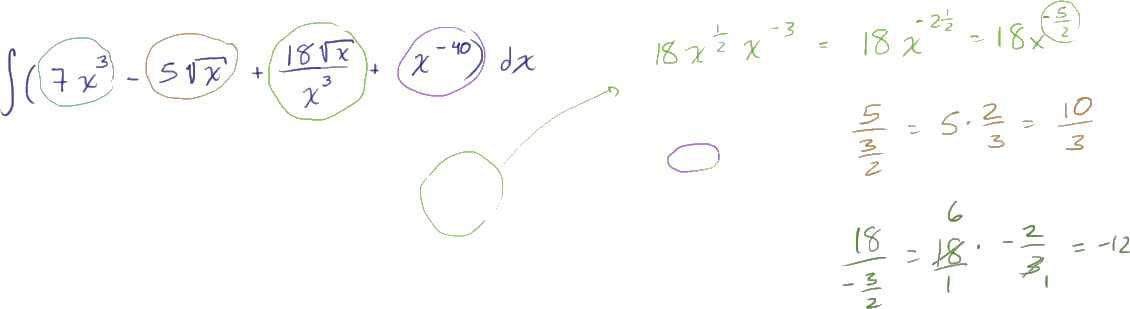 ∫(7x³ - 5√x + 18√x/x³ + x⁻⁴⁰) dx
18x^(1/2) x⁻³ = 18x^(-2 1/2) = 18x^(-5/2)
5/(3/2) = 5 · 2/3 = 10/3
6
18/(-3/2) = 18/1 · -2/3 = -12
1